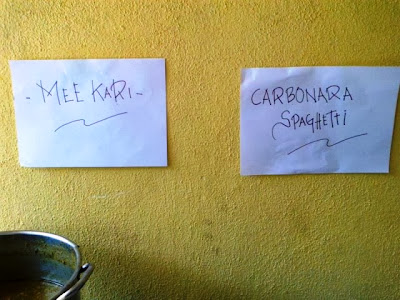 - MEE KARI -
CARBONARA
SPAGHETTI